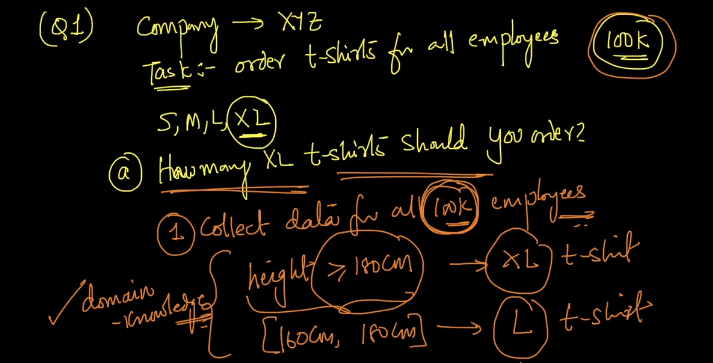 (Q1) Company → XYZ
Task:- order t-shirts for all employees (100K)
S, M, L, XL
(a) How many XL t-shirts should you order?
(1) Collect data for all 100K employees
height ≥ 180cm → XL t-shirt
✓ domain -knowledge { [160cm, 180cm] → L t-shirt